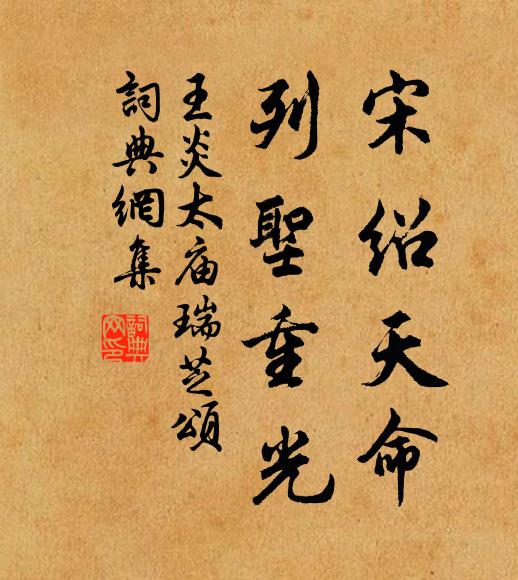 宋绍天命
列聖重光
王炎太庙瑞芝頌
詞典網集
詞典
网印